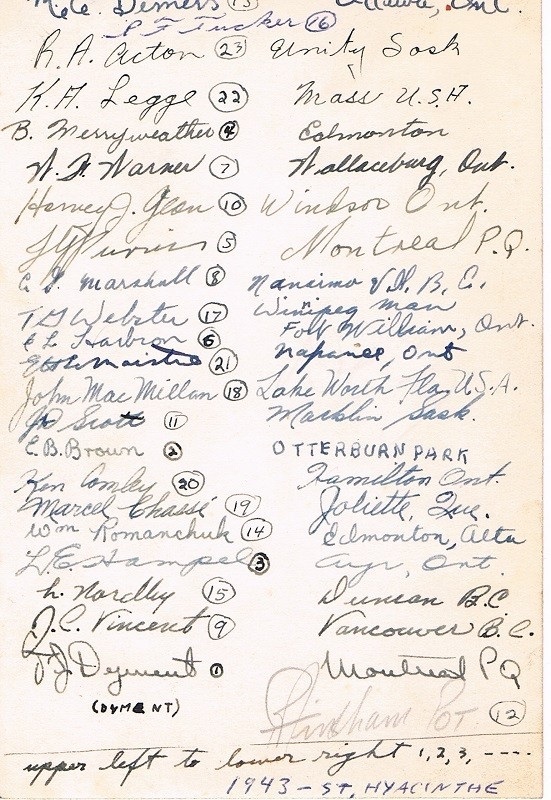 M.C. Demers 13 Ottawa, Ont.
F. Tucker 16
R. A. Acton 23 Unity Sask
K. H. Legge 22 Mass U.S.A.
B. Merryweather 4 Edmonton
W. F. Warner 7 Wallaceburg, Ont.
Harvey J. Glan 10 Windsor Ont.
5 Montreal P.Q.
E. J. Marshall 8 Nanaimo V.I. B.C.
T G Webster 17 Winnipeg Man
E L Harbron 6 Fort William, Ont.
21 Napanee, Ont
John MacMillan 18 Lake Worth Fla. U.S.A.
Scott 11 Macklin Sask.
E.B. Brown 2 OTTERBURN PARK
Ken Comley 20 Hamilton Ont.
Marcel Chassé 19 Joliette, Que.
Wm Romanchuk 14 Edmonton, Alta
L.E. Hampel 3 Ayr, Ont.
L. Nordley 15 Duncan B.C.
J.C. Vincent 9 Vancouver B.C.
J. Dyment 1 Montreal PQ
(DYMENT)
POT. 12
upper left to lower right 1, 2, 3, ----.
1943 - ST, HYACINTHE